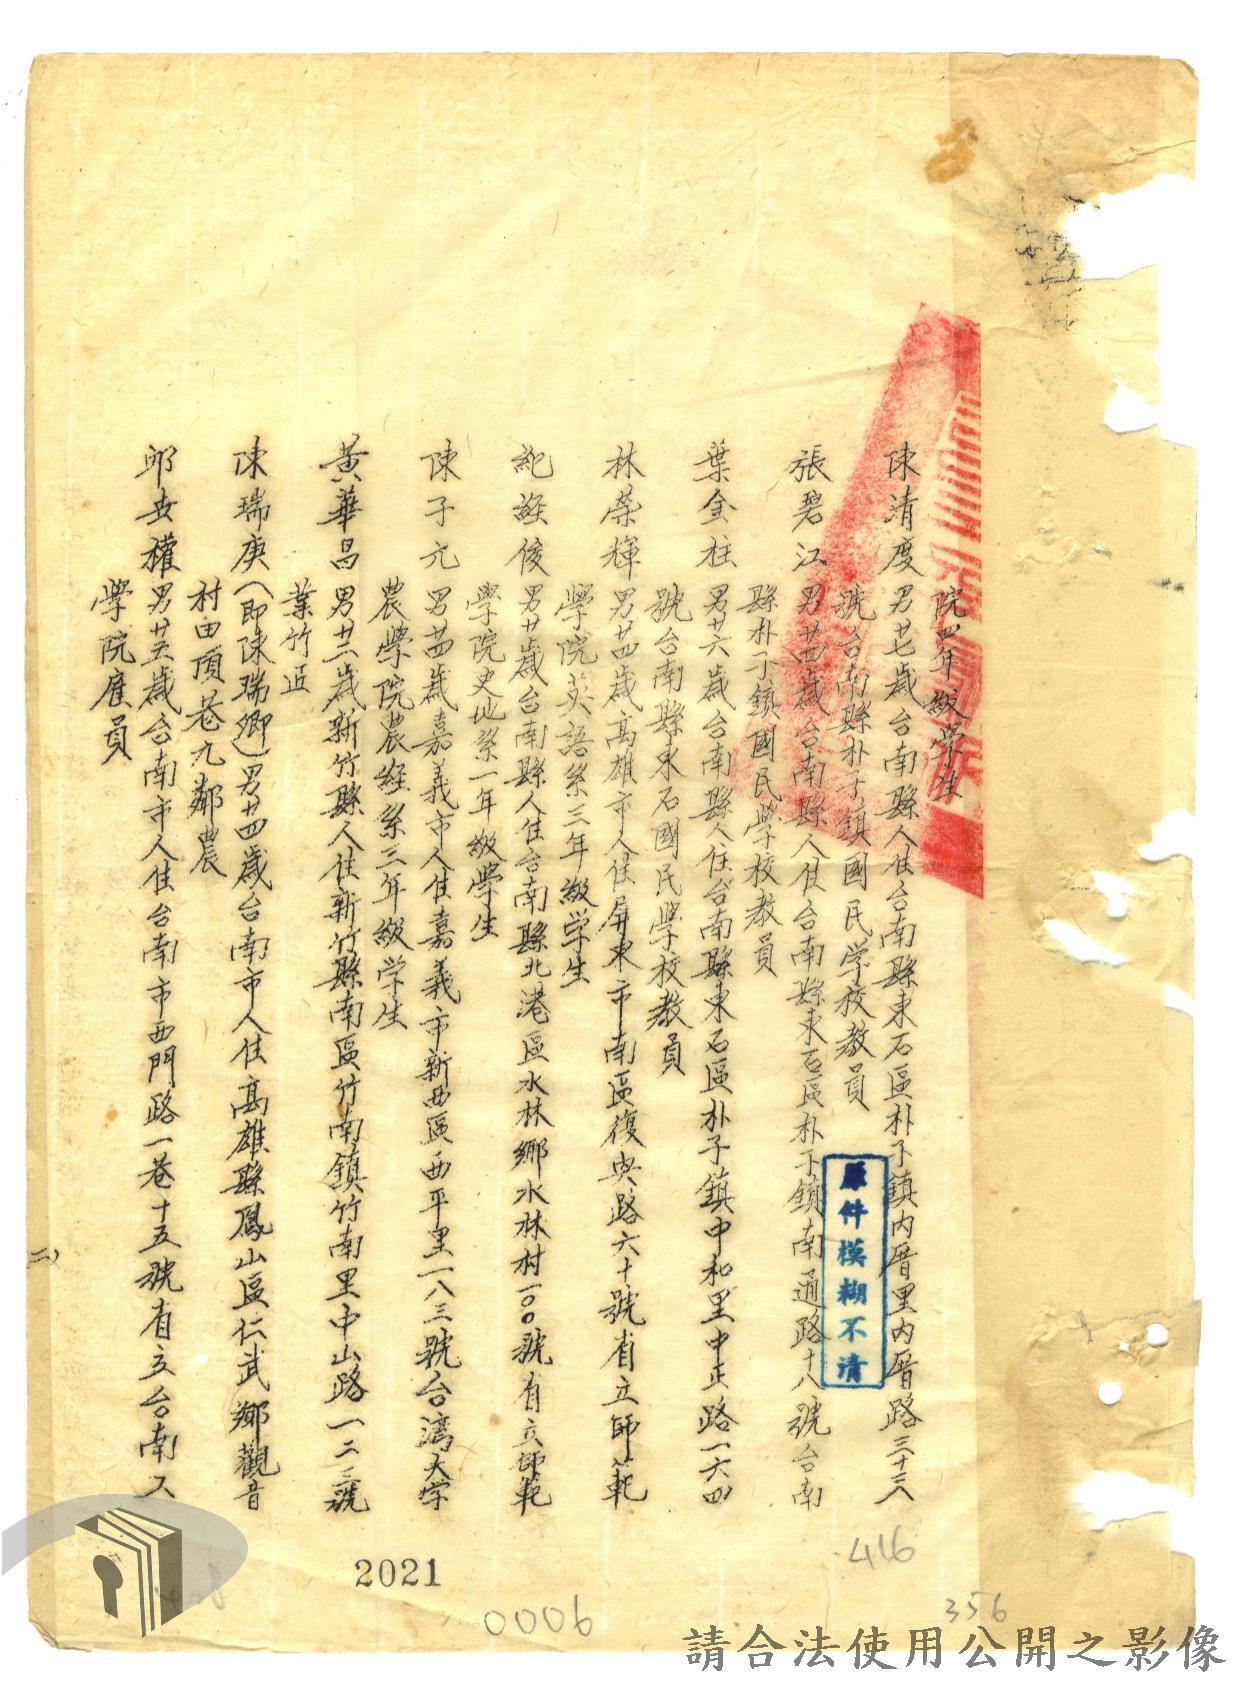 院四年級学生
陳清度男廿七歲台南縣人住台南縣東石區朴子鎮内厝里内厝路三十三八
號台南縣朴子鎮國民学校教員
張碧江男廿四歲台南縣人住台南縣東石區朴子鎮南通路十八號台南
縣朴子鎮國民學校教員
葉金柱男廿六歲台南縣人住台南縣東石區朴子鎮中和里中正路一六四
號台南縣東石國民學校教員
林荣輝男廿四歲高雄市人住屏東市南區復興路六十號省立師範
學院英語系三年級学生
紀經俊男廿歲台南縣人住台南縣北港區水林鄉水林村一00號省立師範
學院史地系一年級學生
陳子元男廿四歲嘉義市人住嘉義市新西區西平里一八三號台湾大学
農學院農經系三年級学生
黃華昌男廿二歲新竹縣人住新竹縣南區竹南鎮竹南里中山路一二二號
業竹正
陳瑞庚(即陳瑞鄉)男廿四歲台南市人住高雄縣鳳山區仁武鄉觀音
村田頂巷九鄰農
邱安權男廿五歲台南市人住台南市西門路一巷十五號省立台南工
學院雇員
二)
原件模糊不清
416
356
2021
0006
請合法使用公開之影像